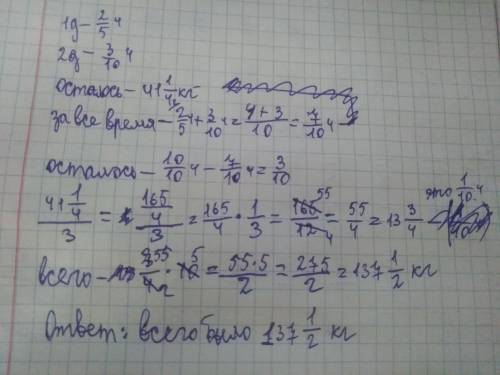 1д - 2/5 ч
2д - 3/10 ч
осталось - 41 1/4 кг
за все время - 2/5 ч + 3/10 ч = 4+3/10 = 7/10 ч
осталось - 10/10 ч - 7/10 ч = 3/10
41 1/4 / 3 = 165/4 / 3 = 165/4 · 1/3 = 165/12 = 55/4 = 13 3/4 - это 1/10 ч
всего - 55/4 · 10 = 55·5/2 = 275/2 = 137 1/2 кг
Ответ: всего было 137 1/2 кг